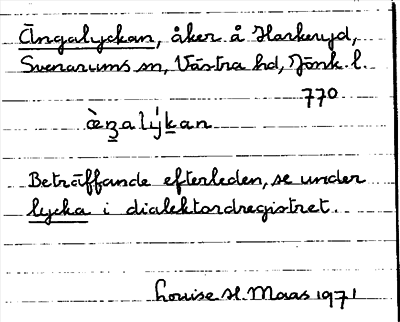 Ängalyckan, åker å Harkeryd,
Svenarums sn, Västra hd, Jönk. l.
770
ὲʒalýkan
Beträffande efterleden, se under
lycka i dialektordregistret.
Louise H. Maas 1971